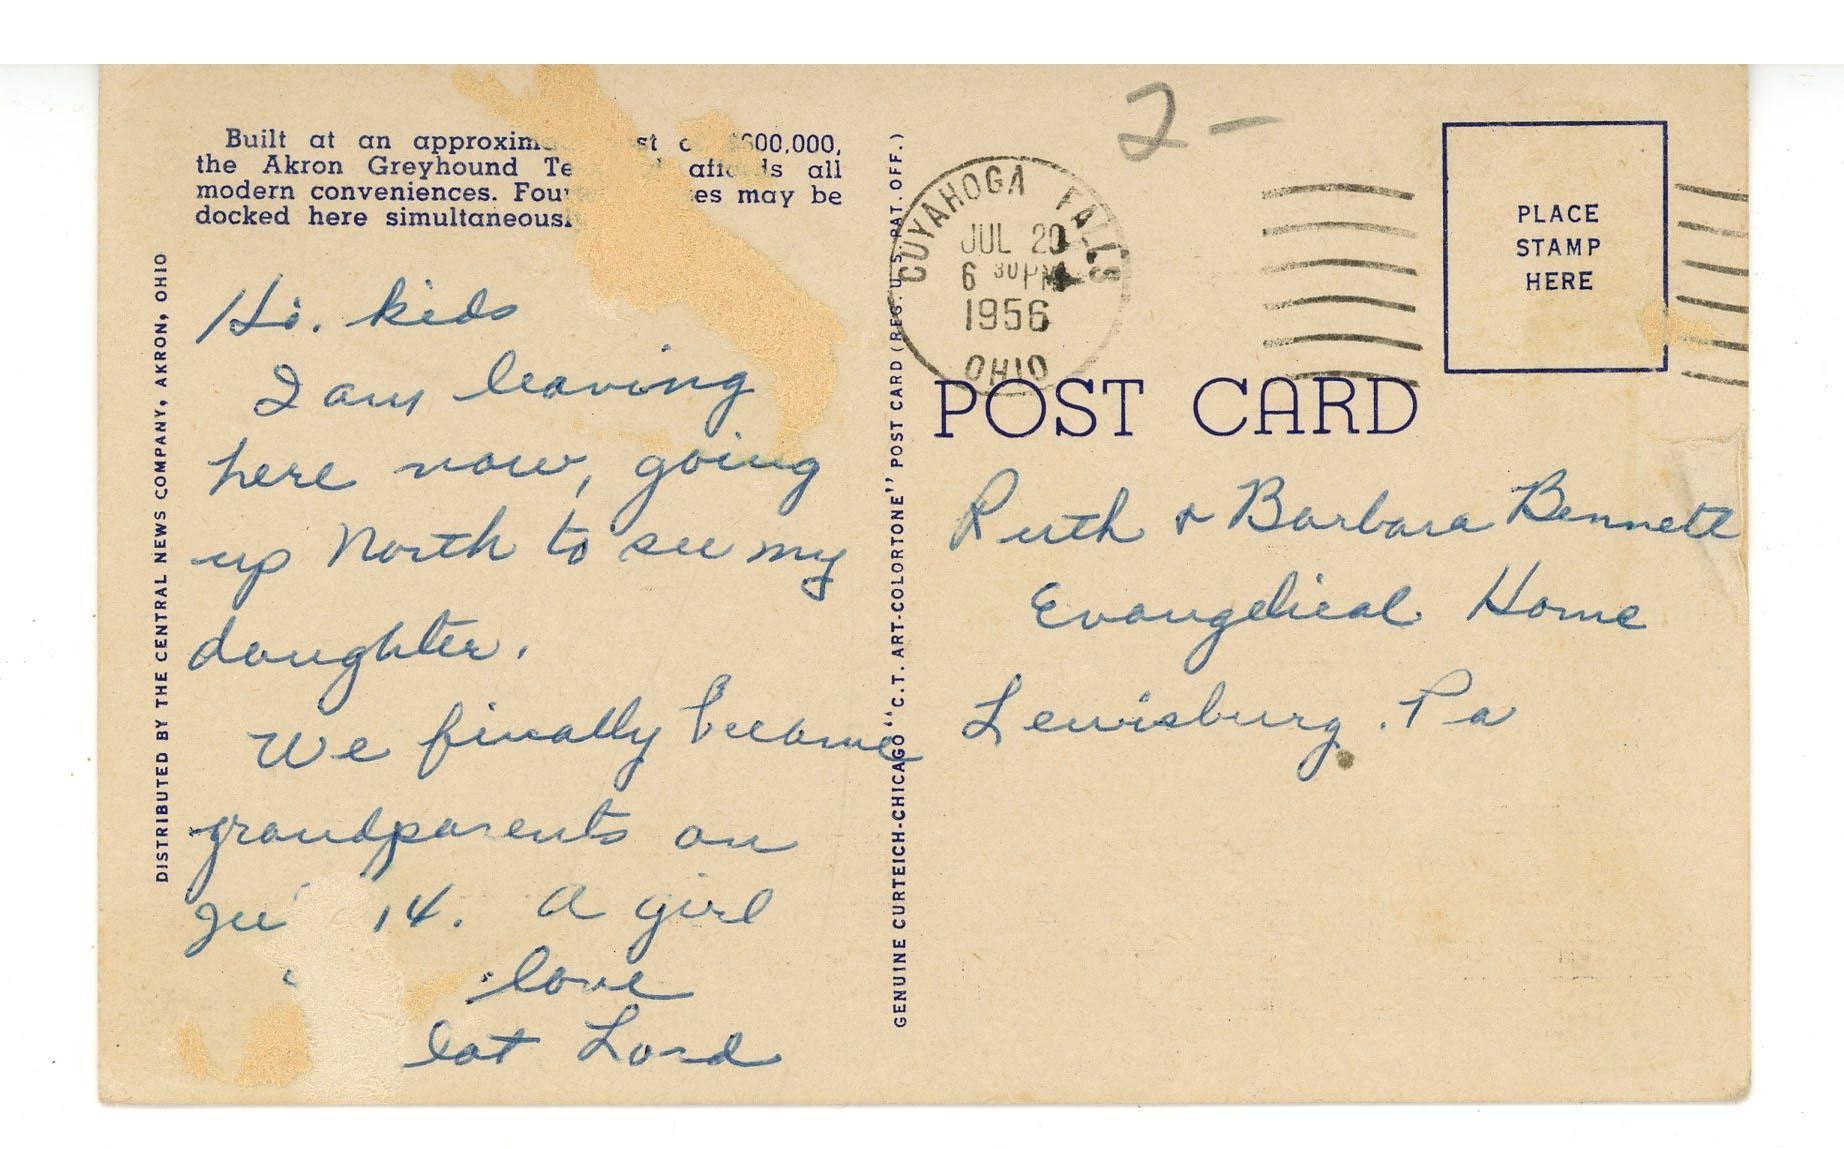 Built at an approxim st $600,000,
the Akron Greyhound Te affords all
modern conveniences. Fou es may be
docked here simultaneousl
Hi. kids
I am leaving
here now, going
up North to see my
daughter.
We finally became
grandparents on
14. A girl
love
Lord
DISTRIBUTED BY THE CENTRAL NEWS COMPANY, AKRON, OHIO
GENUINE CURTEICH-CHICAGO "C.T. ART-COLORTONE" POST CARD (REG. U.S. PAT. OFF.)
2-
CUYAHOGA FALLS
JUL 20
6 30 PM
1956
OHIO
PLACE
STAMP
HERE
POST CARD
Ruth & Barbara Bennett
Evangelical Home
Lewisburg. Pa